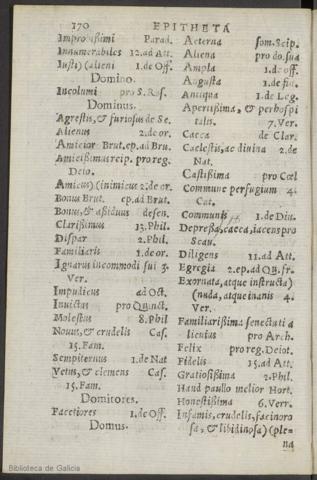 170 EPITHETA
Improbissimi Parad.
Innumerabiles 12.ad Att.
Iusti) (alieni 1.de Off.
Domino.
Incolumi pro S.Ros.
Dominus.
Agrestis,& furiosus de Se.
Alienus 2.de or.
Amicior Brut.ep.ad Bru.
Amicissimus reip. pro reg.
Deio.
Amicus) (inimicus 2.de or.
Bonus Brut. ep.ad Brut.
Bonus,& assiduus de sen.
Clarissimus 13.Phil.
Dispar 2.Phil.
Familiaris 1.de or.
Ignarus incommodi sui 3.
Ver.
Impudicus ad Oct.
Inuictus pro Quinct.
Molestus 8.Phil
Nouus,& crudelis Cas.
15.Fam.
Sempiternus 1.de Nat
Vetus,& clemens Cas.
15.Fam.
Domitores.
Facetiores 1.de Off.
Domus.
Aeterna som.Scip.
Aliena pro do.sua
Ampla 1.de off.
Augusta 1.de fin.
Antiqua 1.de Leg.
Apertissima, & perhospi
talis. 7.Ver.
Caeca de Clar.
Caelestis,ac diuina 2.de
Nat.
Castissima pro Coel
Commune perfugium 4.
Cat.
Communis 1.de Diu.
Depressa,caeca,iacens pro
Scau.
Diligens 11.ad Att.
Egregia 2.ep.ad Qu.fr.
Exornata,atque instructa)
(nuda, atque inanis 4.
Ver.
Familiarissima senectuti a
licuius pro Arch.
Felix pro reg.Deiot.
Fidelis 15.ad Att.
Gratiosissima 2.Phil.
Haud paullo melior Hort.
Honestissima 6.Verr.
Infamis,crudelis,facinoro
sa, & libidinosa) (ple-
na
Biblioteca de Galicia